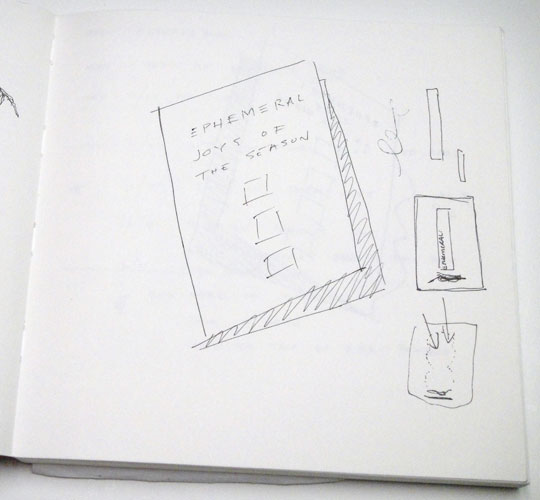 EPHEMERAL
JOYS OF
THE SEASON
EPHEMERAL